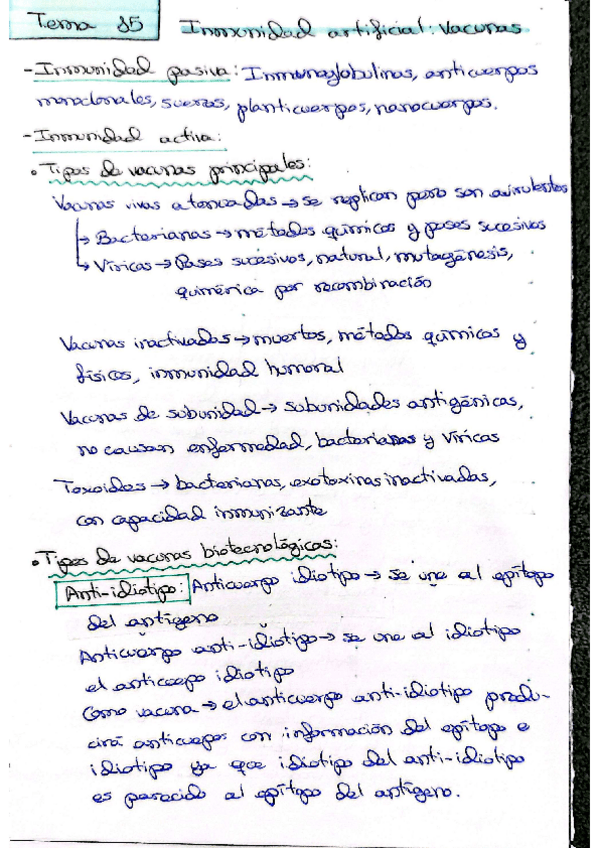 Tema 15 Inmunidad artificial: Vacunas
- Inmunidad pasiva: Inmunoglobulinas, anticuerpos
monoclonales, sueros, planticuerpos, nanocuerpos.
- Inmunidad activa:
• Tipos de vacunas principales:
Vacunas vivas atenuadas → se replican pero son avirulentos
↳ Bacterianas → métodos químicos y pases sucesivos
↳ Víricas → Pases sucesivos, natural, mutagénesis,
quimérica por recombinación
Vacunas inactivadas → muertos, métodos químicos y
físicos, inmunidad humoral
Vacunas de subunidad → subunidades antigénicas,
no causan enfermedad, bacterianas y víricas
Toxoides → bacterianas, exotoxinas inactivadas,
con capacidad inmunizante
• Tipos de vacunas biotecnológicas:
Anti-idiotipo: Anticuerpo idiotipo → se une al epítopo
del antígeno
Anticuerpo anti-idiotipo → se une al idiotipo
el anticuepo idiotipo
Como vacuna → el anticuerpo anti-idiotipo produ-
cirá anticuepos con información del epítopo e
idiotipo ya que idiotipo del anti-idiotipo
es parecido al epítopo del antígeno.